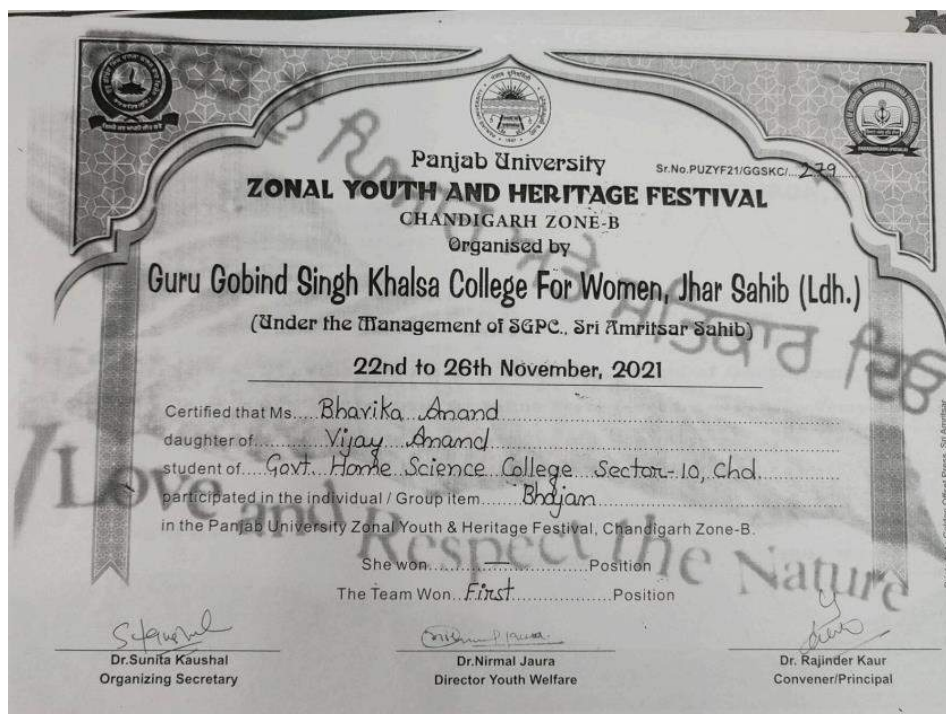 Panjab University
Sr.No.PUZYF21/GGSKC/...279......
ZONAL YOUTH AND HERITAGE FESTIVAL
CHANDIGARH ZONE-B
Organised by
Guru Gobind Singh Khalsa College For Women, Jhar Sahib (Ldh.)
(Under the Management of SGPC., Sri Amritsar Sahib)
22nd to 26th November, 2021
Certified that Ms.....Bhavika Anand
daughter of.........Vijay Anand
student of....Govt. Home Science College Sector-10, Chd.
participated in the individual / Group item......Bhajan
in the Panjab University Zonal Youth & Heritage Festival, Chandigarh Zone-B.
Love and Respect the Nature
She won.........—.........Position
The Team Won..First...............Position
Dr.Sunita Kaushal
Organizing Secretary
Dr.Nirmal Jaura
Director Youth Welfare
Dr. Rajinder Kaur
Convener/Principal